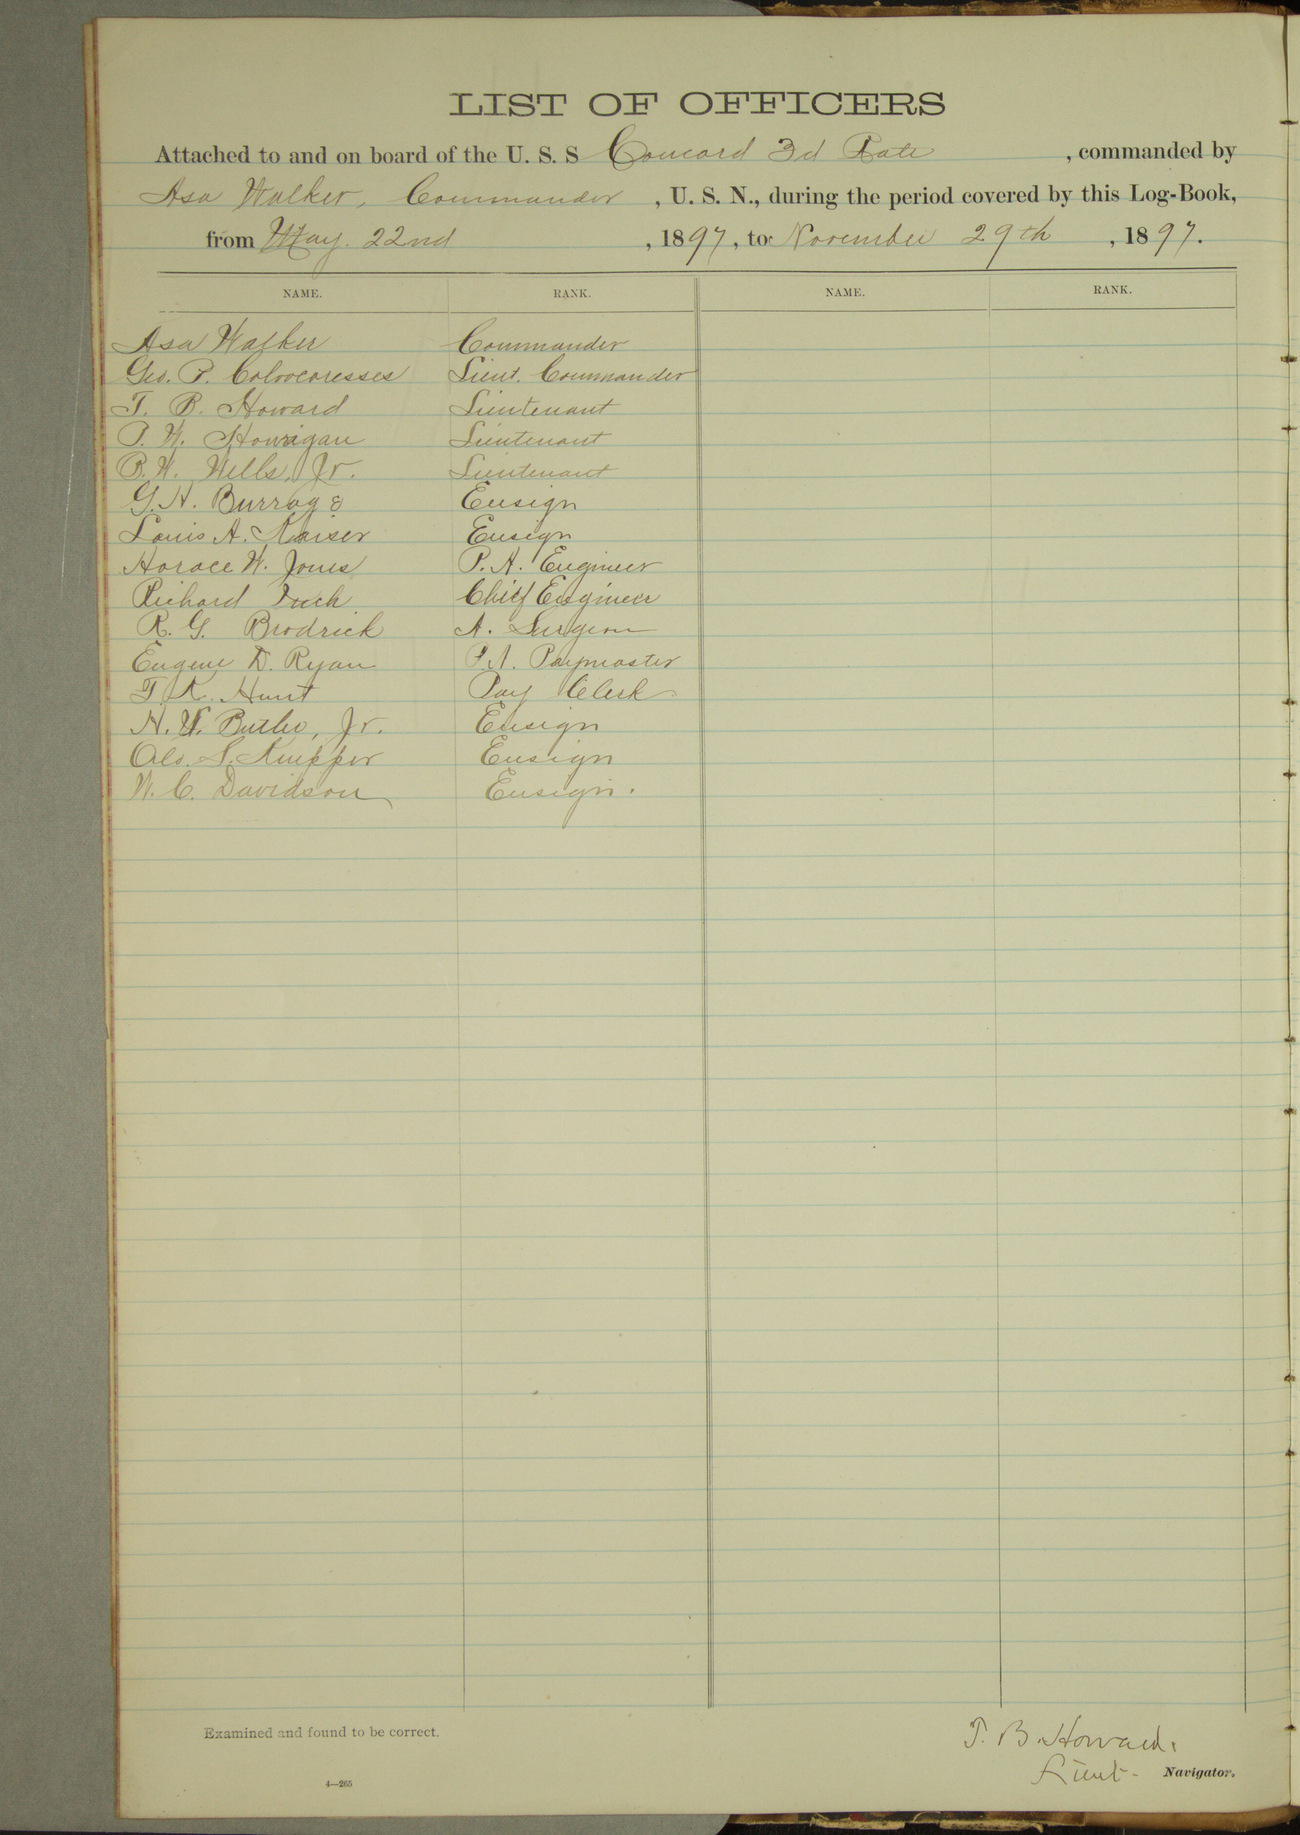 LIST OF OFFICERS
Attached to and on board of the U. S. S Concord 3d Rate , commanded by
Asa Walker, Commander , U. S. N., during the period covered by this Log-Book,
from May. 22nd , 1897, to November 29th , 1897.
NAME. RANK. NAME. RANK.
Asa Walker Commander
Geo. P. Colvocoresses Lieut. Commander
T. B. Howard Lieutenant
P. W. Hourigan Lieutenant
B. W. Wells, Jr. Lieutenant
G. H. Burrage Ensign
Louis A. Kaiser Ensign
Horace W. Jones P. A. Engineer
Richard Inch Chief Engineer
R. G. Brodrick A. Surgeon
Eugene D. Ryan P. A. Paymaster
F. K. Hunt Pay Clerk
H. V. Butler, Jr. Ensign
S. Knepper Ensign
W. C. Davidson Ensign.
Examined and found to be correct.
T. B. Howard.
Lieut- Navigator.
4—265